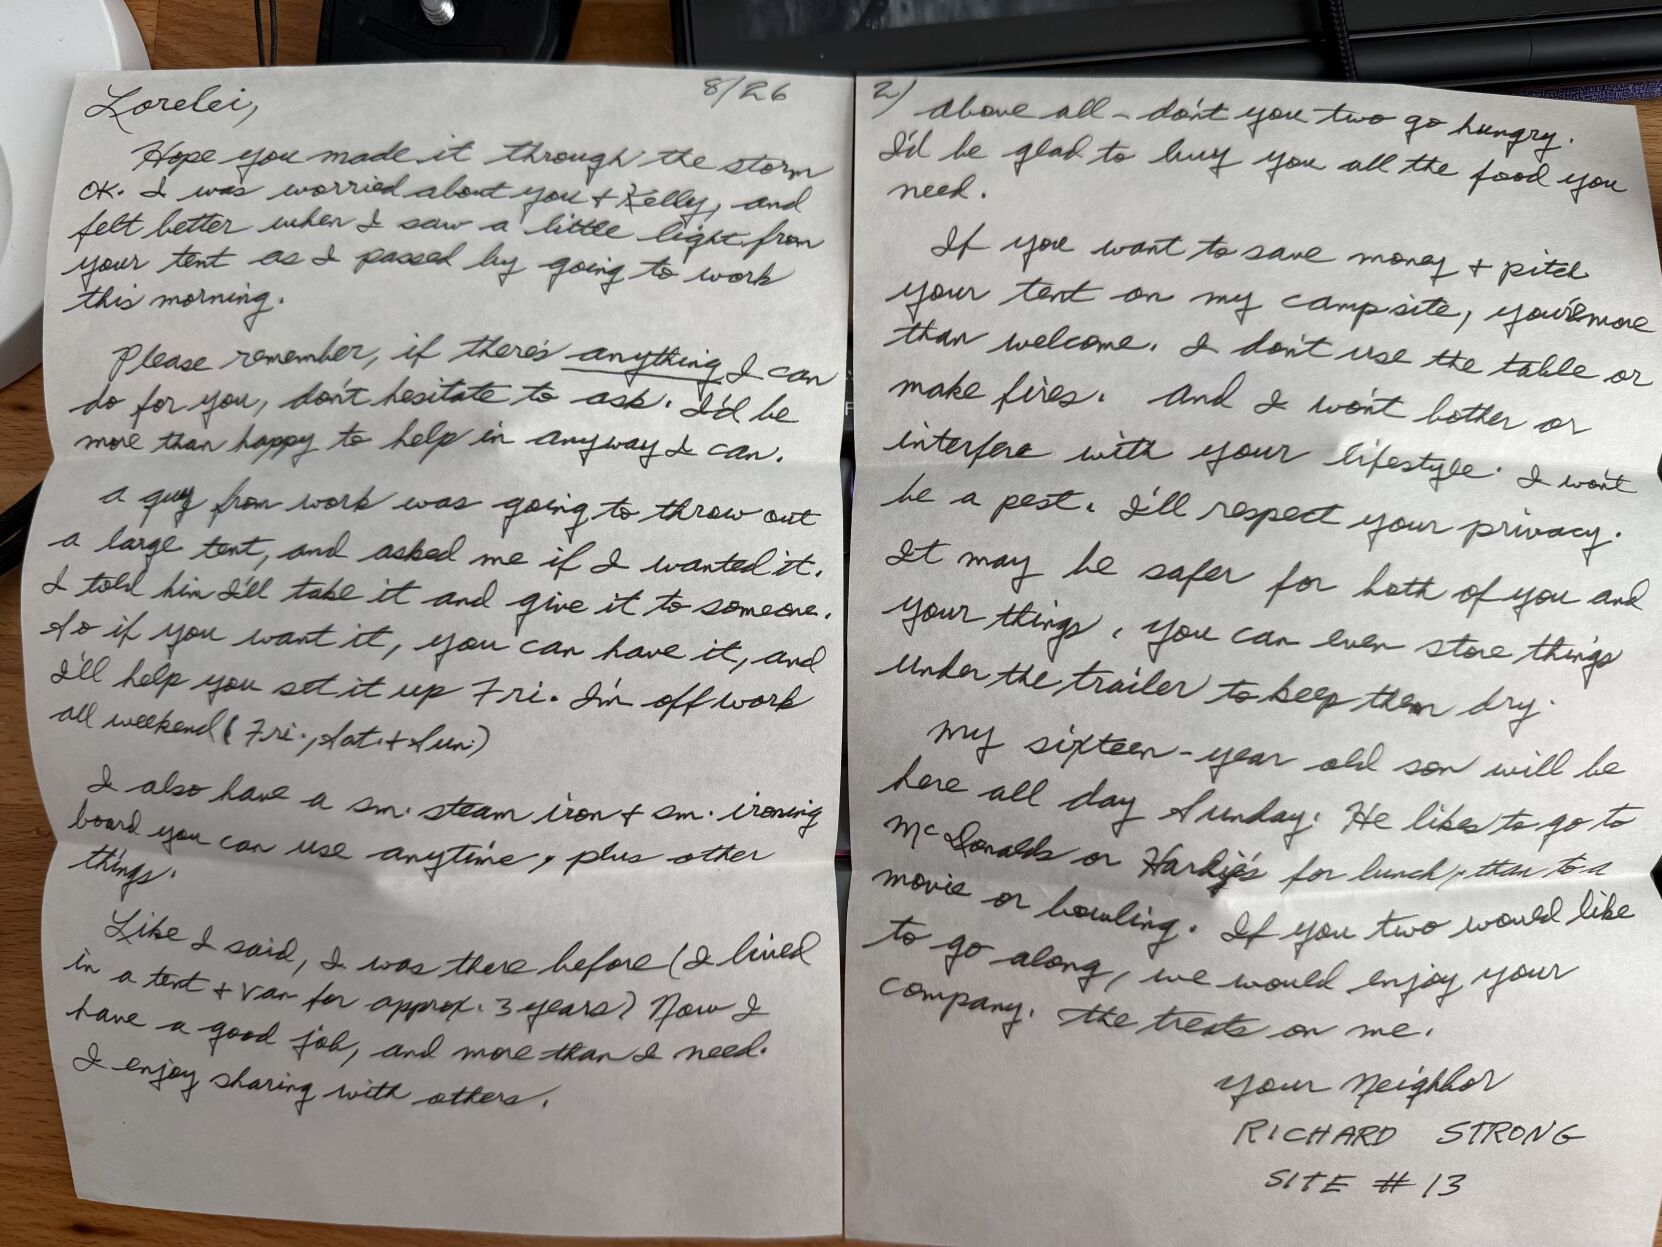 8/26
Lorelei,
Hope you made it through the storm
OK. I was worried about you + Kelly, and
felt better when I saw a little light from
your tent as I passed by going to work
this morning.
Please remember, if there's anything I can
do for you, don't hesitate to ask. I'd be
more than happy to help in anyway I can.
A guy from work was going to throw out
a large tent, and asked me if I wanted it.
I told him I'll take it and give it to someone.
So if you want it, you can have it, and
I'll help you set it up Fri. I'm off work
all weekend (Fri., Sat. + Sun.)
I also have a sm. steam iron + sm. ironing
board you can use anytime, plus other
things.
Like I said, I was there before (I lived
in a tent + van for approx. 3 years) Now I
have a good job, and more than I need.
I enjoy sharing with others.
2) Above all - don't you two go hungry.
I'd be glad to buy you all the food you
need.
If you want to save money + pitch
your tent on my campsite, you're more
than welcome. I don't use the table or
make fires. And I won't bother or
interfere with your lifestyle. I won't
be a pest. I'll respect your privacy.
It may be safer for both of you and
your things. You can even store things
under the trailer to keep them dry.
My sixteen-year old son will be
here all day Sunday. He likes to go to
McDonalds or Hardie's for lunch, than to a
movie or bowling. If you two would like
to go along, we would enjoy your
company. The treats on me.
Your Neighbor
RICHARD STRONG
SITE # 13